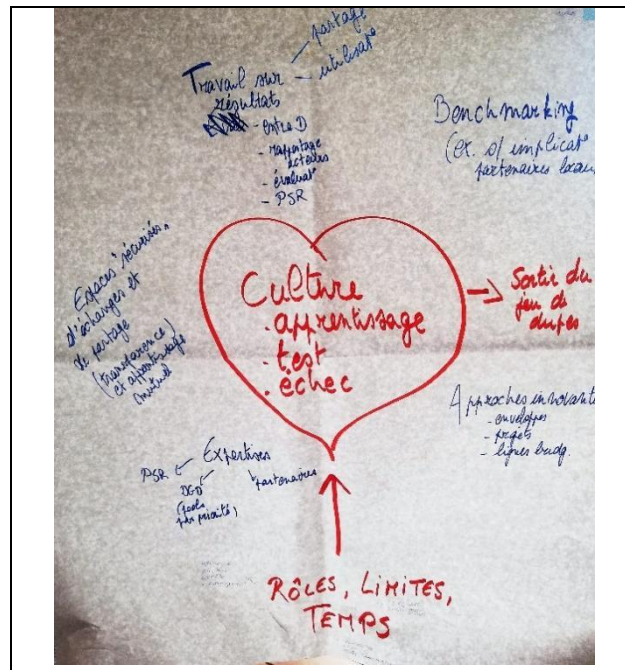 Travail sur
résultats
partage
utilisat°
- entre D
- rapportage
acteurs
- évaluat°
- PSR
Benchmarking
(ex. s/ implicat°
partenaires locaux
Espaces "sécurisés"
d'échanges et
de partage
(transparence)
et apprentissage
mutuel
Culture
. apprentissage
. test
. échec
→ Sortir du
jeu de
dupes
Approches innovante
- enveloppes
- projets
- lignes budg.
Expertises
PSR
DGD
(pools
par priorité)
partenaires
RÔLES, LIMITES,
TEMPS